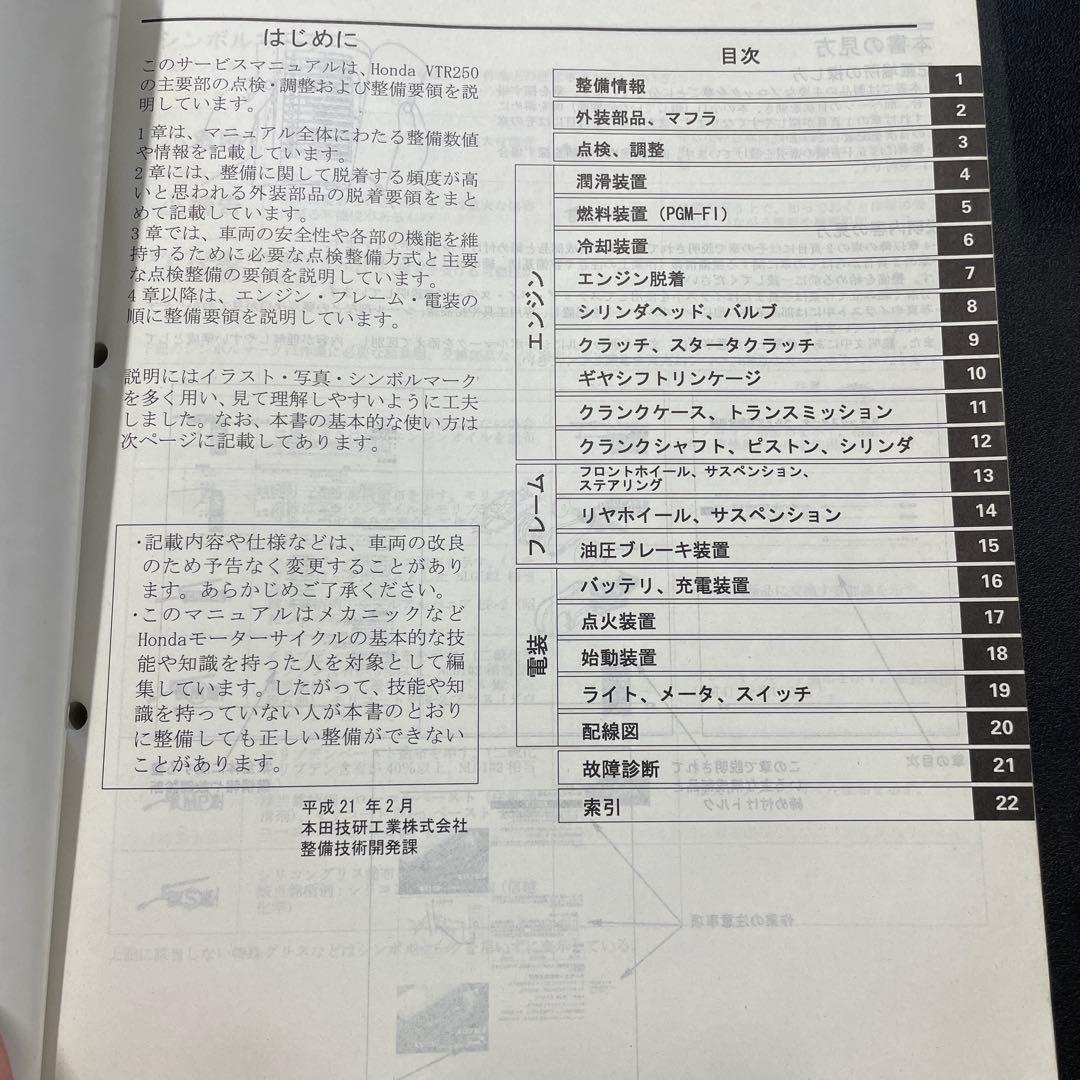 はじめに
このサービスマニュアルは、Honda VTR250
の主要部の点検・調整および整備要領を説
明しています。
1章は、マニュアル全体にわたる整備数値
や情報を記載しています。
2章には、整備に関して脱着する頻度が高
いと思われる外装部品の脱着要領をまと
めて記載しています。
3章では、車両の安全性や各部の機能を維
持するために必要な点検整備方式と主要
な点検整備の要領を説明しています。
4章以降は、エンジン・フレーム・電装の
順に整備要領を説明しています。
説明にはイラスト・写真・シンボルマーク
を多く用い、見て理解しやすいように工夫
しました。なお、本書の基本的な使い方は
次ページに記載してあります。
・記載内容や仕様などは、車両の改良
のため予告なく変更することがあり
ます。あらかじめご了承ください。
・このマニュアルはメカニックなど
Hondaモーターサイクルの基本的な技
能や知識を持った人を対象として編
集しています。したがって、技能や知
識を持っていない人が本書のとおり
に整備しても正しい整備ができない
ことがあります。
平成21年2月
本田技研工業株式会社
整備技術開発課
目次
整備情報 1
外装部品、マフラ 2
点検、調整 3
エンジン
潤滑装置 4
燃料装置（PGM-FI） 5
冷却装置 6
エンジン脱着 7
シリンダヘッド、バルブ 8
クラッチ、スタータクラッチ 9
ギヤシフトリンケージ 10
クランクケース、トランスミッション 11
クランクシャフト、ピストン、シリンダ 12
フレーム
フロントホイール、サスペンション、
ステアリング 13
リヤホイール、サスペンション 14
油圧ブレーキ装置 15
電装
バッテリ、充電装置 16
点火装置 17
始動装置 18
ライト、メータ、スイッチ 19
配線図 20
故障診断 21
索引 22